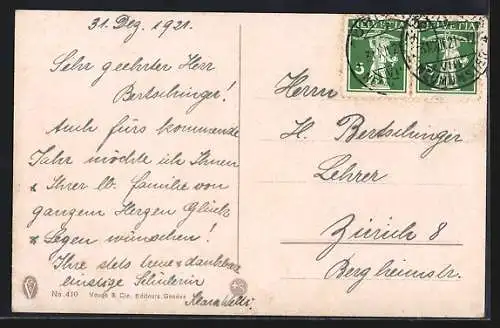 31. Dez. 1921.
Sehr geehrter Herr
Bertschinger!
Auch fürs kommende
Jahr möchte ich Ihnen
& Ihrer lb. Familie von
ganzem Herzen Glück
& Segen wünschen!
Ihre stets treue & dankbare
einstige Schülerin
HELVETIA HELVETIA
5
Herrn
H. Bertschinger
Lehrer
Zürich 8
Bergheimstr.
No. 410 Vouga & Cie, Editeurs, Genève